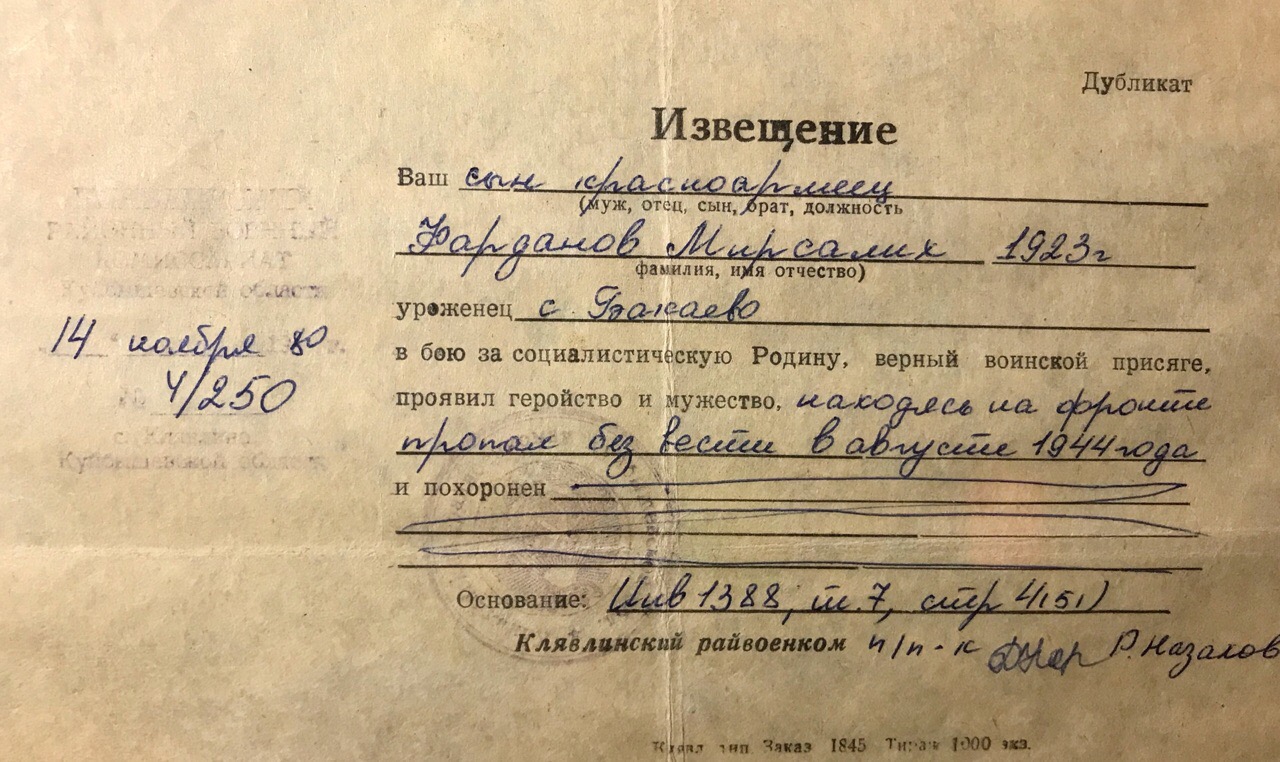 Дубликат
Извещение
Ваш сын красноармеец
(муж, отец, сын, брат, должность
Фарданов Мирсалих 1923г
фамилия, имя отчество)
уроженец с. Бакаево
в бою за социалистическую Родину, верный воинской присяге,
проявил геройство и мужество, находясь на фронте
пропал без вести в августе 1944 года
и похоронен
Основание: Инв 1388, т. 7, стр 4(51)
Клявлинский райвоенком п/п-к Р. Назаков
Клявл. тип. Заказ 1845 Тираж 1000 экз.
РАЙОННЫЙ ВОЕННЫЙ
КОМИССАРИАТ
Куйбышевской области
14 ноября 80 г.
№ 4/250
с. Клявлино,
Куйбышевской области